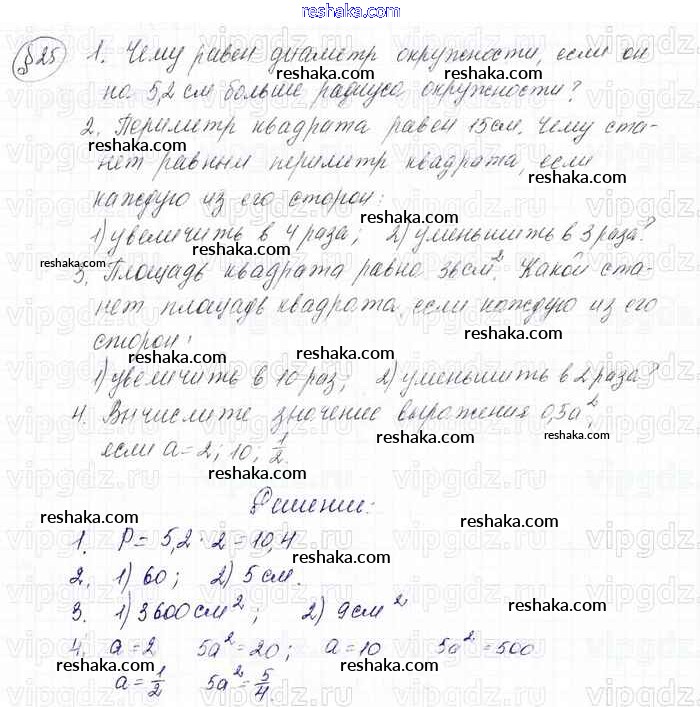 reshaka.com
§25
1. Чему равен диаметр окружности, если он
reshaka.com reshaka.com
на 5,2 см больше радиуса окружности?
reshaka.com
2. Периметр квадрата равен 15см. Чему ста-
reshaka.com
нет равным периметр квадрата, если
reshaka.com reshaka.com
каждую из его сторон:
1) увеличить в 4 раза; 2) уменьшить в 3 раза?
reshaka.com reshaka.com
reshaka.com
3. Площадь квадрата равна 36см². Какой ста-
нет площадь квадрата, если каждую из его
reshaka.com reshaka.com
сторон:
1) увеличить в 10 раз; 2) уменьшить в 2 раза?
reshaka.com reshaka.com
4. Вычислите значение выражения 0,5a²,
reshaka.com
если a = 2; 10; 1/2.
reshaka.com
Решение:
reshaka.com reshaka.com
1. P = 5,2 · 2 = 10,4
reshaka.com
2. 1) 60; 2) 5 см.
reshaka.com
3. 1) 3600 см²; 2) 9 см²
reshaka.com
4. a = 2 5a² = 20; a = 10 5a² = 500
reshaka.com reshaka.com
a = 1/2 5a² = 5/4.
reshaka.com